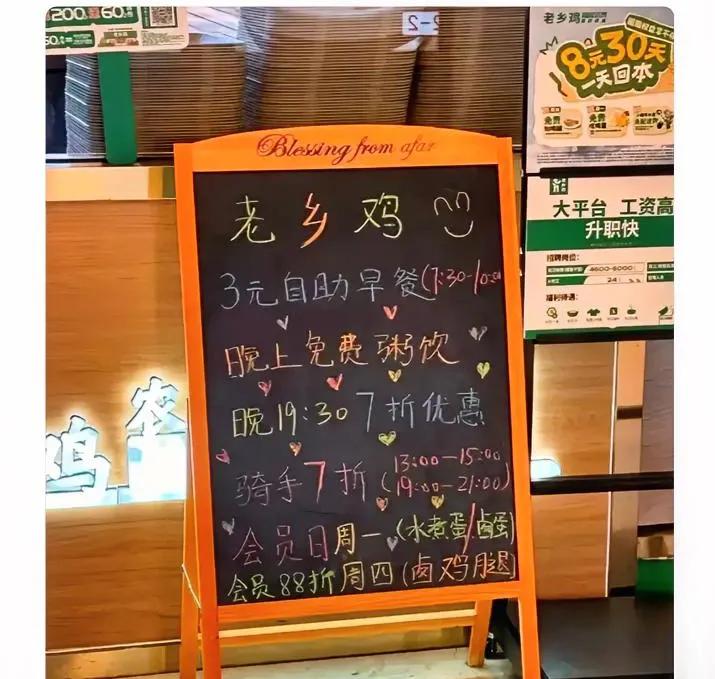 200
60
50
2-2
Blessing from afar
老乡鸡
3元自助早餐(7:30-10:00
晚上免费粥饮
晚19:30 7折优惠
骑手7折(13:00-15:00
19:00-21:00)
会员日周一(水煮蛋/卤蛋)
会员88折周四(卤鸡腿)
老乡鸡
8元30天
一天回本
免费
免费
大平台 工资高
升职快
招聘岗位：
4600-6000
24
福利待遇：
鸡